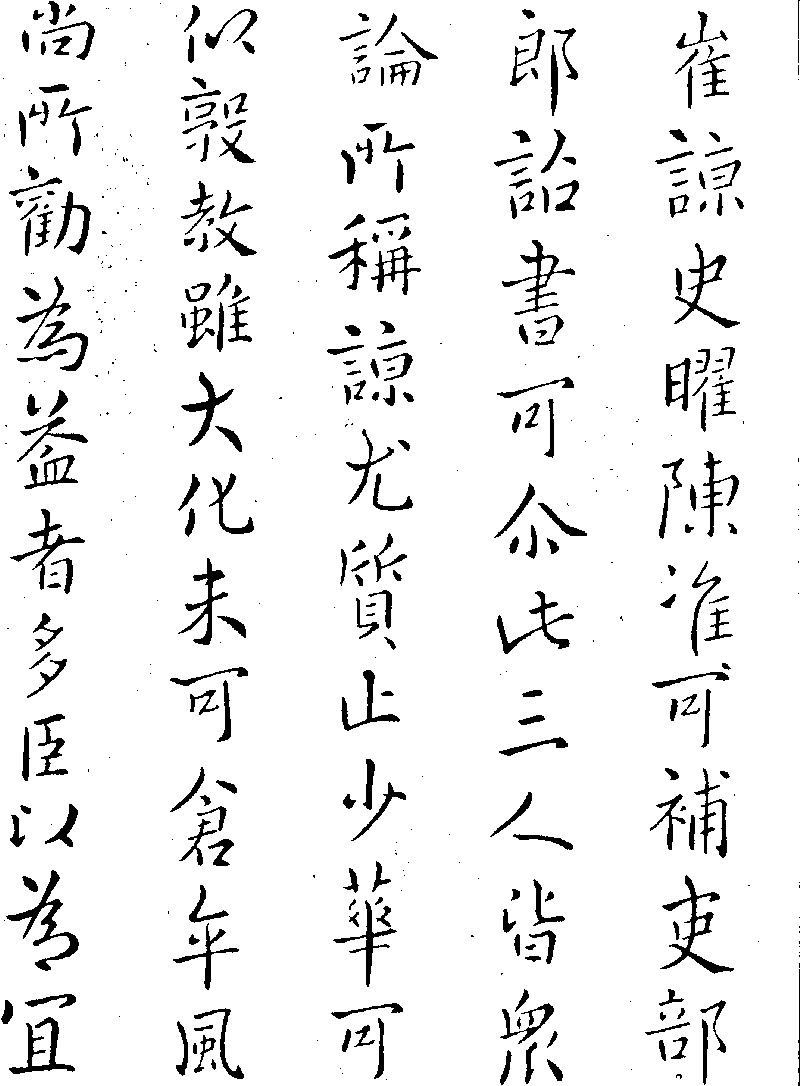 崔諒史曜陳准可補吏部
郎詔書可尒此三人皆衆
論所稱諒尤質止少華可
似敦教雖大化未可倉卒風
尚所勸為益者多臣以為宜